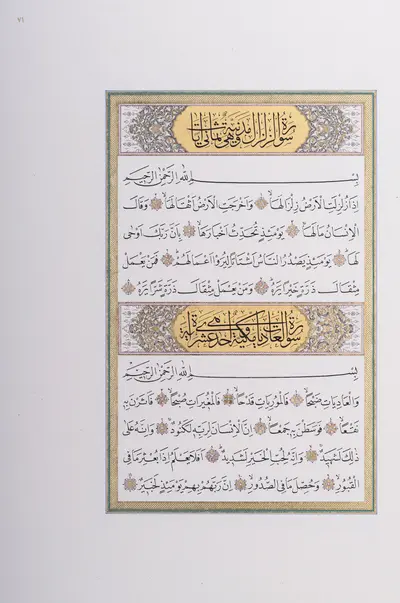 ٧١
سورة الزلزال مدنية وهي ثماني آيات
بِسْمِ اللّٰهِ الرَّحْمٰنِ الرَّحِيمِ
اِذَا زُلْزِلَتِ الْاَرْضُ زِلْزَالَهَا وَاَخْرَجَتِ الْاَرْضُ اَثْقَالَهَا وَقَالَ
الْاِنْسَانُ مَالَهَا يَوْمَئِذٍ تُحَدِّثُ اَخْبَارَهَا بِاَنَّ رَبَّكَ اَوْحٰى
لَهَا يَوْمَئِذٍ يَصْدُرُ النَّاسُ اَشْتَاتًا لِيُرَوْا اَعْمَالَهُمْ فَمَنْ يَعْمَلْ
مِثْقَالَ ذَرَّةٍ خَيْرًا يَرَهُ وَمَنْ يَعْمَلْ مِثْقَالَ ذَرَّةٍ شَرًّا يَرَهُ
سورة العاديات مكية وهي احدى عشرة آية
بِسْمِ اللّٰهِ الرَّحْمٰنِ الرَّحِيمِ
وَالْعَادِيَاتِ ضَبْحًا فَالْمُورِيَاتِ قَدْحًا فَالْمُغِيرَاتِ صُبْحًا فَاَثَرْنَ بِهِ
نَقْعًا فَوَسَطْنَ بِهِ جَمْعًا اِنَّ الْاِنْسَانَ لِرَبِّهِ لَكَنُودٌ وَاِنَّهُ عَلٰى
ذٰلِكَ لَشَهِيدٌ وَاِنَّهُ لِحُبِّ الْخَيْرِ لَشَدِيدٌ اَفَلَا يَعْلَمُ اِذَا بُعْثِرَ مَا فِي
الْقُبُورِ وَحُصِّلَ مَا فِي الصُّدُورِ اِنَّ رَبَّهُمْ بِهِمْ يَوْمَئِذٍ لَخَبِيرٌ